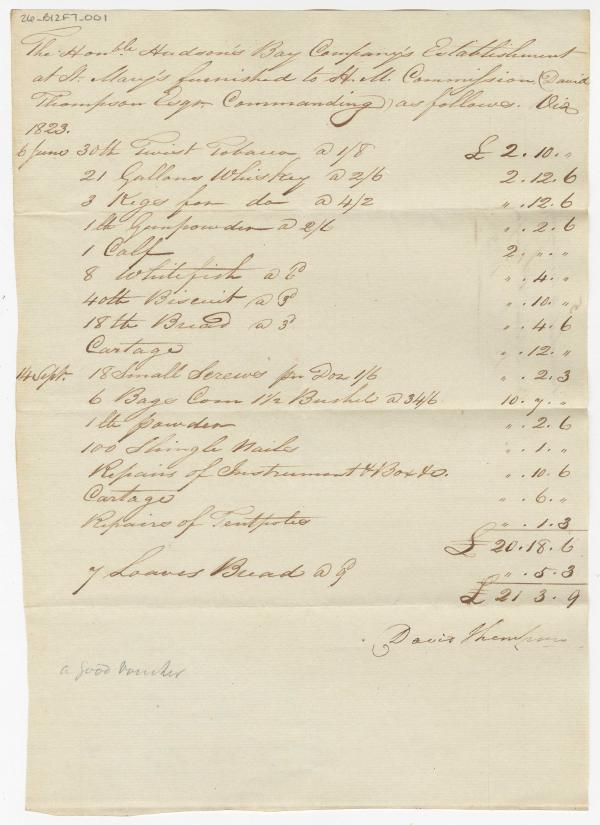 26_B12F7_001
The Honble Hudson's Bay Company's Establishment
at St. Mary's furnished to H. M. Commission (David
Thompson Esqr Commanding) as follows. Viz
1823.
6 June 30 lb Twist Tobacco a 1/8 £ 2. 10. "
21 Gallons Whiskey a 2/6 2. 12. 6
3 Kegs for do a 4/2 ". 12. 6
1 lb Gunpowder a 2/6 ". 2. 6
1 Calf 2. ". "
8 Whitefish a 6d ". 4. "
40 lb Biscuit a 3d ". 10. "
18 lb Bread a 3d ". 4. 6
Cartage ". 12. "
14 Sept. 18 Small Screws pr Doz 1/6 ". 2. 3
6 Bags Corn 1 1/2 Bushel a 34/6 10. 7. "
1 lb powder ". 2. 6
100 Shingle Nails ". 1. "
Repairs of Instrument & Box &c. ". 10. 6
Cartage ". 6. "
Repairs of Tentpoles ". 1. 3
£ 20. 18. 6
7 Loaves Bread a 9d ". 5. 3
£ 21 3. 9
David Thompson
a good voucher